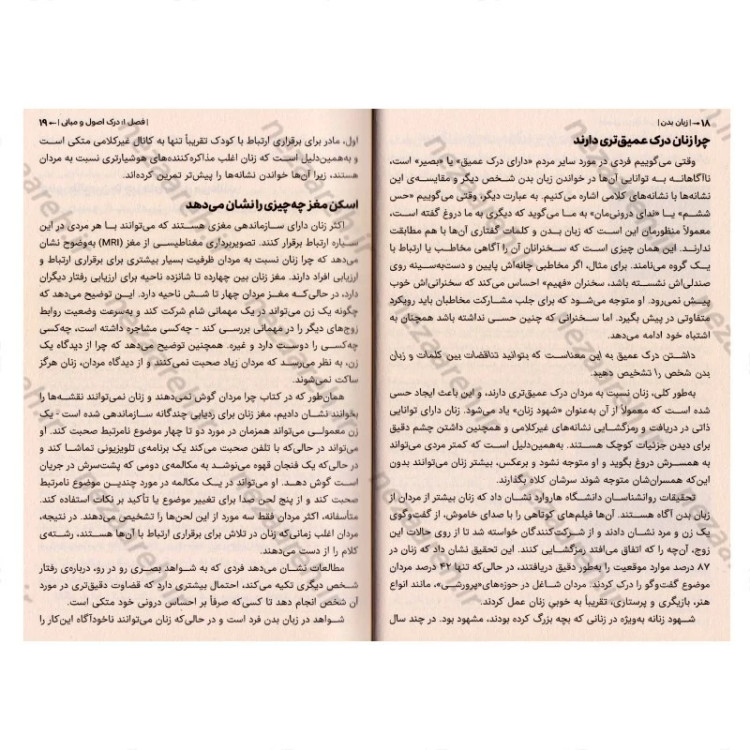 ۱۸ → | زبان بدن |
چرا زنان درک عمیق‌تری دارند
وقتی می‌گوییم فردی در مورد سایر مردم «دارای درک عمیق» یا «بصیر» است،
ناآگاهانه به توانایی آن‌ها در خواندن زبان بدن شخص دیگر و مقایسه‌ی این
نشانه‌ها با نشانه‌های کلامی اشاره می‌کنیم. به عبارت دیگر، وقتی می‌گوییم «حس
ششم» یا «ندای درونی‌مان» به ما می‌گوید که دیگری به ما دروغ گفته است،
معمولاً منظورمان این است که زبان بدن و کلمات گفتاری آن‌ها با هم مطابقت
ندارند. این همان چیزی است که سخنرانان آن را آگاهی مخاطب یا ارتباط با
یک گروه می‌نامند. برای مثال، اگر مخاطبی چانه‌اش پایین و دست‌به‌سینه روی
صندلی‌اش نشسته باشد، سخنران «فهیم» احساس می‌کند که سخنرانی‌اش خوب
پیش نمی‌رود. او متوجه می‌شود که برای جلب مشارکت مخاطبان باید رویکرد
متفاوتی در پیش بگیرد. اما سخنرانی که چنین حسی نداشته باشد همچنان به
اشتباه خود ادامه می‌دهد.
داشتن درک عمیق به این معناست که بتوانید تناقضات بین کلمات و زبان
بدن شخص را تشخیص دهید.
به‌طور کلی، زنان نسبت به مردان درک عمیق‌تری دارند، و این باعث ایجاد حسی
شده است که معمولاً از آن به‌عنوان «شهود زنان» یاد می‌شود. زنان دارای توانایی
ذاتی در دریافت و رمزگشایی نشانه‌های غیرکلامی و همچنین داشتن چشم دقیق
برای دیدن جزئیات کوچک هستند. به‌همین‌دلیل است که کمتر مردی می‌تواند
به همسرش دروغ بگوید و او متوجه نشود و برعکس، بیشتر زنان می‌توانند بدون
این‌که همسران‌شان متوجه شوند سرشان کلاه بگذارند.
تحقیقات روانشناسان دانشگاه هاروارد نشان داد که زنان بیشتر از مردان از
زبان بدن آگاه هستند. آن‌ها فیلم‌های کوتاهی را با صدای خاموش، از گفت‌وگوی
یک زن و مرد نشان دادند و از شرکت‌کنندگان خواسته شد تا از روی حالات این
زوج، آن‌چه را که اتفاق می‌افتد رمزگشایی کنند. این تحقیق نشان داد که زنان در
۸۷ درصد موارد موقعیت را به‌طور دقیق دریافتند، در حالی‌که تنها ۴۲ درصد مردان
موضوع گفت‌وگو را درک کردند. مردان شاغل در حوزه‌های «پرورشی»، مانند انواع
هنر، بازیگری و پرستاری، تقریباً به خوبی زنان عمل کردند.
شهود زنانه به‌ویژه در زنانی که بچه بزرگ کرده بودند، مشهود بود. در چند سال
| فصل ۱: درک اصول و مبانی | ← ۱۹
اول، مادر برای برقراری ارتباط با کودک تقریباً تنها به کانال غیرکلامی متکی است
و به‌همین‌دلیل است که زنان اغلب مذاکره‌کننده‌های هوشیارتری نسبت به مردان
هستند، زیرا آن‌ها خواندن نشانه‌ها را پیش‌تر تمرین کرده‌اند.
اسکن مغز چه‌چیزی را نشان می‌دهد
اکثر زنان دارای سازماندهی مغزی هستند که می‌توانند با هر مردی در این
سیاره ارتباط برقرار کنند. تصویربرداری مغناطیسی از مغز (MRI) به‌وضوح نشان
می‌دهد که چرا زنان نسبت به مردان ظرفیت بسیار بیشتری برای برقراری ارتباط و
ارزیابی افراد دارند. مغز زنان بین چهارده تا شانزده ناحیه برای ارزیابی رفتار دیگران
دارد، در حالی‌که مغز مردان چهار تا شش ناحیه دارد. این توضیح می‌دهد که
چگونه یک زن می‌تواند در یک مهمانی شام شرکت کند و به‌سرعت وضعیت روابط
زوج‌های دیگر را در مهمانی بررسی کند - چه‌کسی مشاجره داشته است، چه‌کسی
چه‌کسی را دوست دارد و غیره. همچنین توضیح می‌دهد که چرا از دیدگاه یک
زن، به نظر می‌رسد که مردان زیاد صحبت نمی‌کنند و از دیدگاه مردان، زنان هرگز
ساکت نمی‌شوند.
همان‌طور که در کتاب چرا مردان گوش نمی‌دهند و زنان نمی‌توانند نقشه‌ها را
بخوانند نشان دادیم، مغز زنان برای ردیابی چندگانه سازماندهی شده است - یک
زن معمولی می‌تواند همزمان در مورد دو تا چهار موضوع نامرتبط صحبت کند. او
می‌تواند در حالی‌که با تلفن صحبت می‌کند یک برنامه‌ی تلویزیونی تماشا کند و
در حالی‌که یک فنجان قهوه می‌نوشد به مکالمه‌ی دومی که پشت‌سرش در جریان
است گوش دهد. او می‌تواند در یک مکالمه در مورد چندین موضوع نامرتبط
صحبت کند و از پنج لحن صدا برای تغییر موضوع یا تأکید بر نکات استفاده کند.
متأسفانه، اکثر مردان فقط سه مورد از این لحن‌ها را تشخیص می‌دهند. در نتیجه،
مردان اغلب زمانی‌که زنان در تلاش برای برقراری ارتباط با آن‌ها هستند، رشته‌ی
کلام را از دست می‌دهند.
مطالعات نشان می‌دهد فردی که به شواهد بصری رو در رو، درباره‌ی رفتار
شخص دیگری تکیه می‌کند، احتمال بیشتری دارد که قضاوت دقیق‌تری در مورد
آن شخص انجام دهد تا کسی‌که صرفاً بر احساس درونی خود متکی است.
شواهد در زبان بدن فرد است و در حالی‌که زنان می‌توانند ناخودآگاه این‌کار را